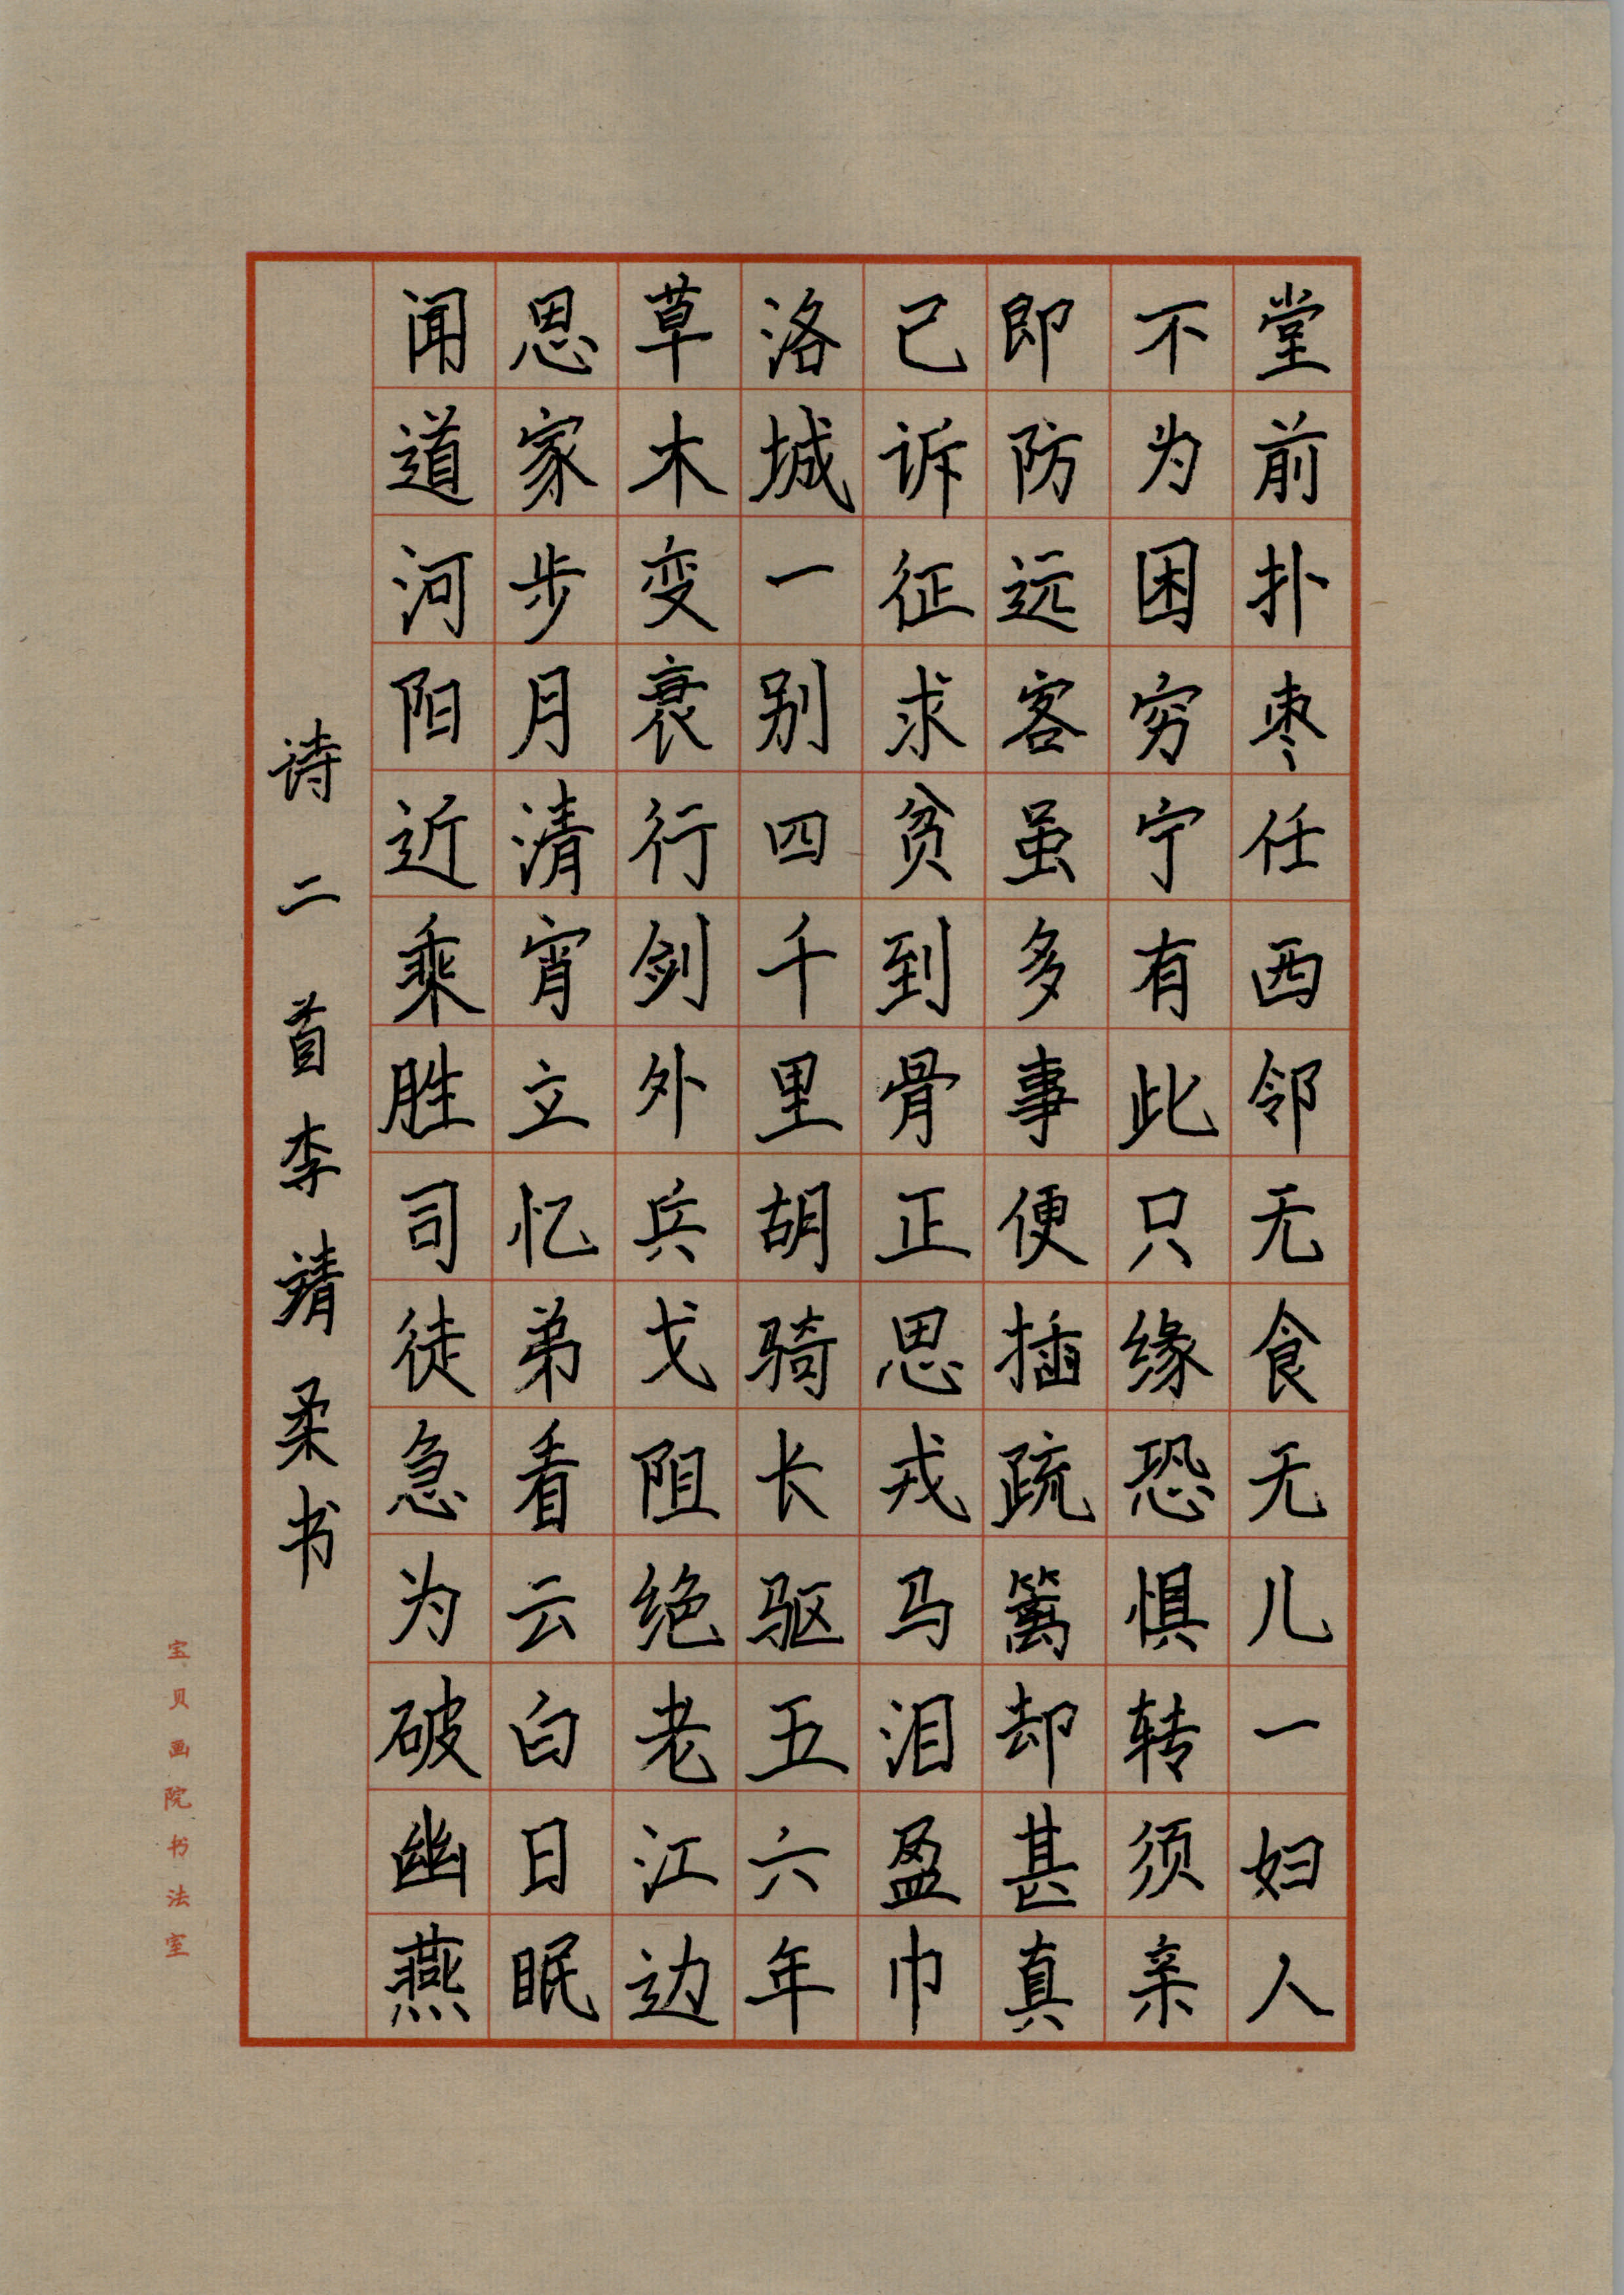 堂前扑枣任西邻无食无儿一妇人
不为困穷宁有此只缘恐惧转须亲
即防远客虽多事便插疏篱却甚真
己诉征求贫到骨正思戎马泪盈巾
洛城一别四千里胡骑长驱五六年
草木变衰行剑外兵戈阻绝老江边
思家步月清宵立忆弟看云白日眠
闻道河阳近乘胜司徒急为破幽燕
诗二首李靖柔书
宝贝画院书法室